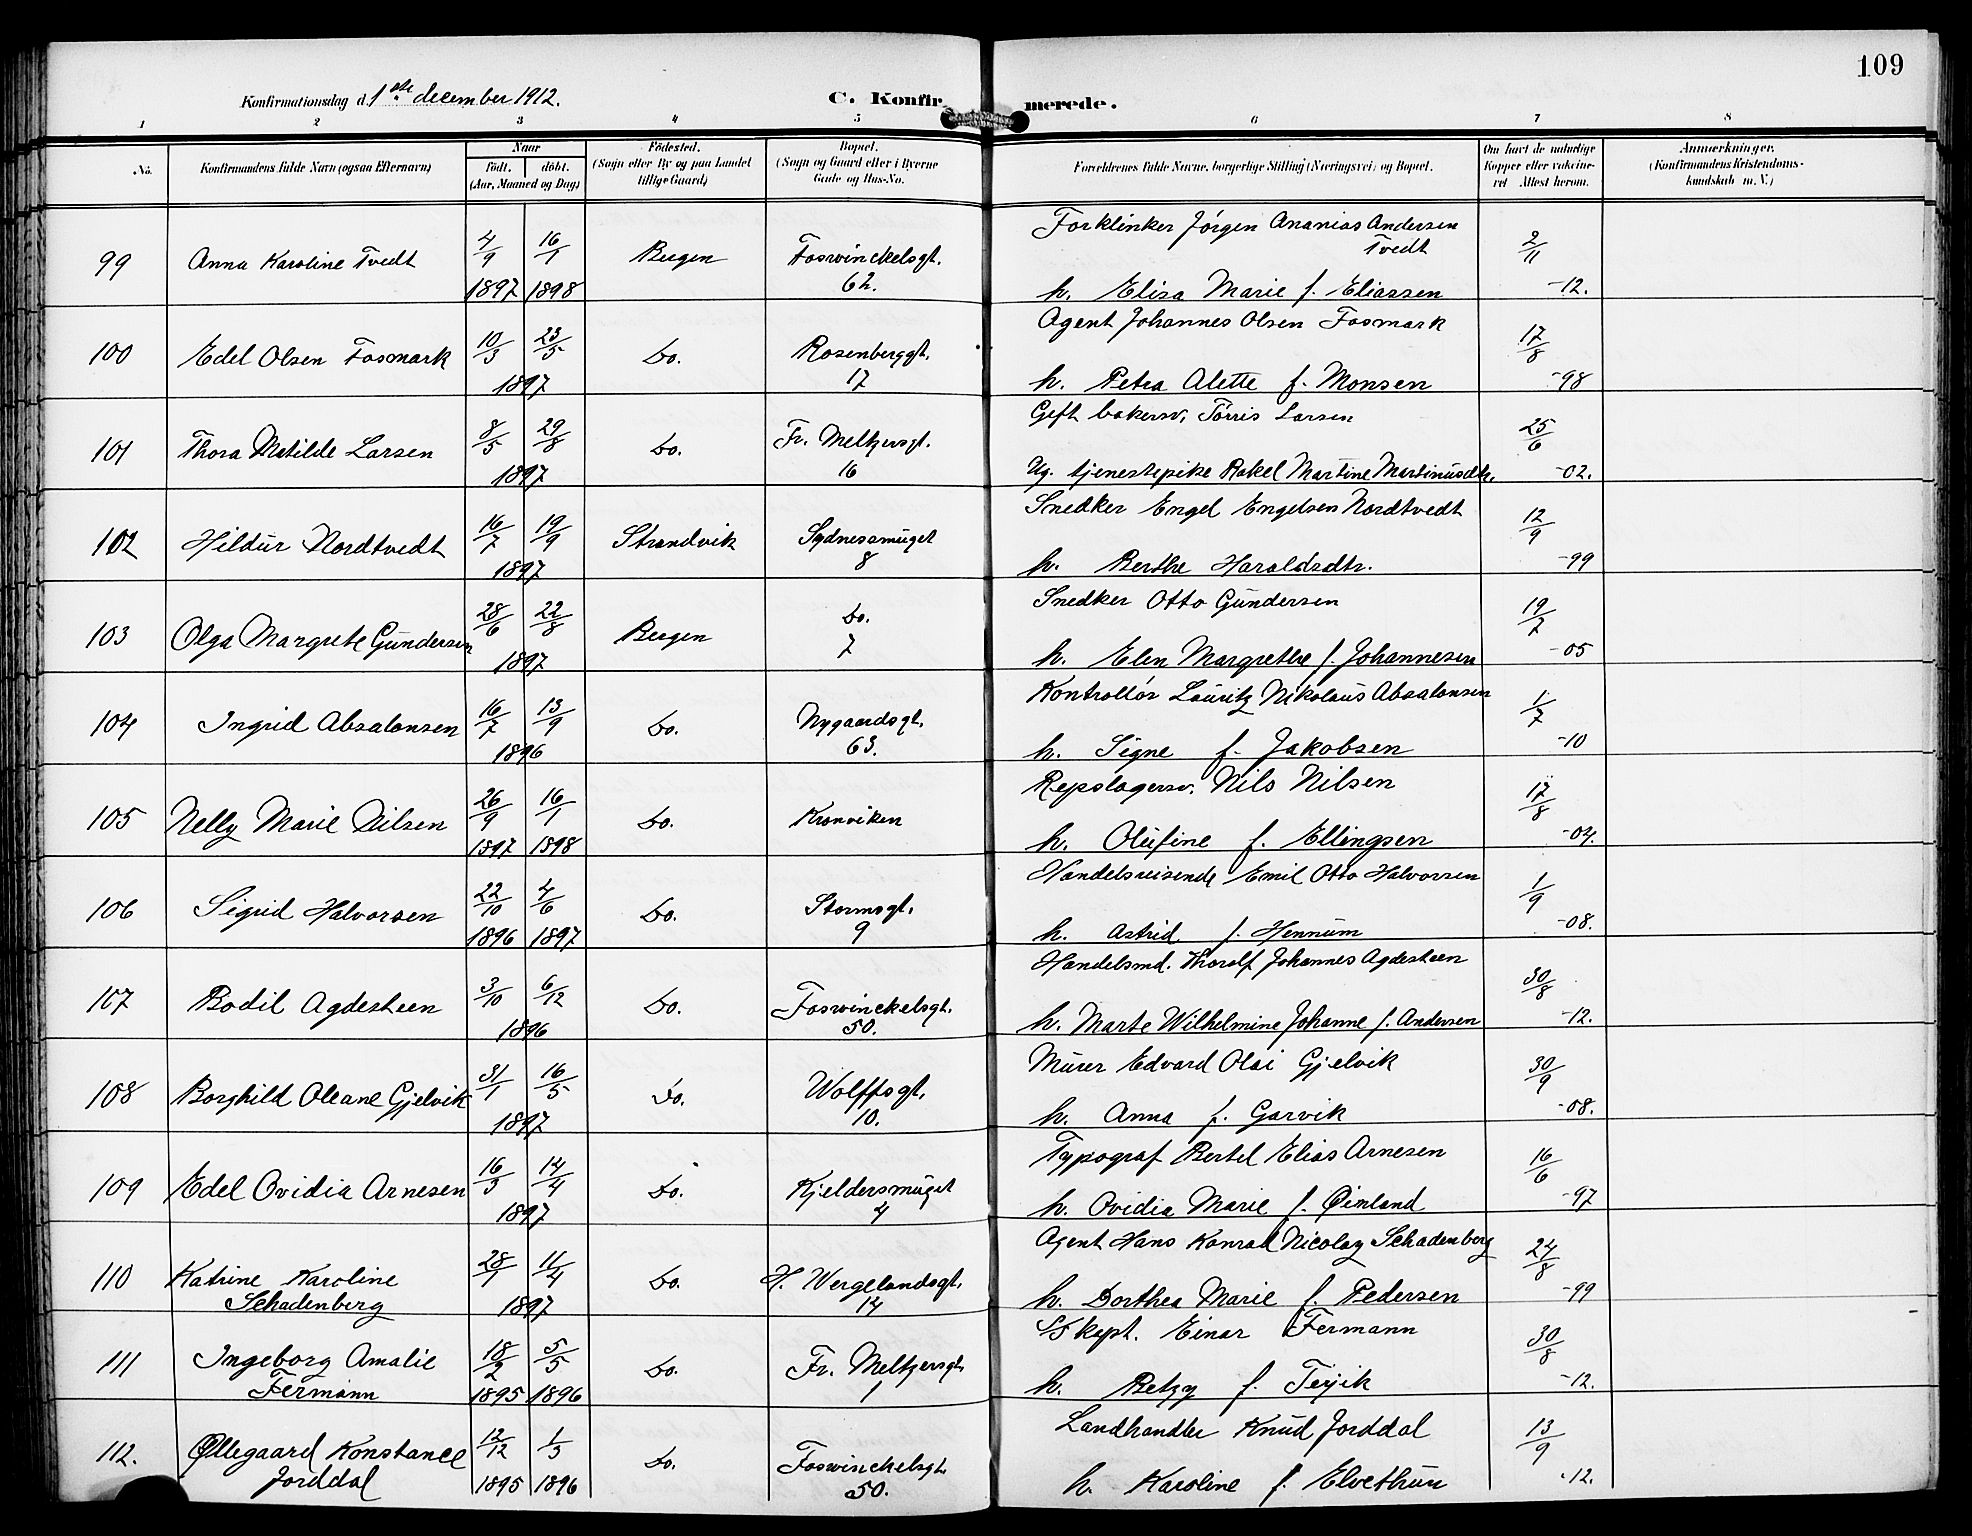 109
Konfirmationsdag d. 1ste december 1912.
C. Konfirmerede.
1 2 3 4 5 6 7 8
No.
Konfirmandens fulde Navn (ogsaa Efternavn)
Naar
født. døbt.
(Aar, Maaned og Dag)
Fødested.
(Sogn eller By og paa Landet
tillige Gaard)
Bopæl.
(Sogn og Gaard eller i Byerne
Gade og Hus-No.
Forældrenes fulde Navne, borgerlige Stilling (Næringsvei) og Bopæl.
Om havt de naturlige
Kopper eller vakcine-
ret Attest herom.
Anmærkninger.
(Konfirmandens Kristendoms-
kundskab m. V.)
99 Anna Karoline Tvedt 4/9 1897 16/1 1898 Bergen Foswinckelsgt. 62.
Forklinker Jørgen Ananias Andersen
Tvedt
h. Elisa Marie f. Eliassen 2/11 -12.
100 Edel Olsen Fosmark 10/3 23/5 1897 Do. Rosenberggt. 17
Agent Johannes Olsen Fosmark
h. Petra Alette f. Monsen 17/8 -98
101 Thora Matilde Larsen 8/5 29/8 1897 Do. Fr. Meltzersgt. 16
Gift bakersv. Tørris Larsen
Ug. tjenestepike Rakel Martine Martinusdtr. 25/6 -02.
102 Hildur Nordtvedt 16/7 19/9 1897 Strandvik Sydnessmuget 8
Snedker Engel Engelsen Nordtvedt
h. Berthe Haraldsdtr. 12/9 -99
103 Olga Margrete Gundersen 28/6 22/8 1897 Bergen Do. 7
Snedker Otto Gundersen
h. Elen Margrethe f. Johannesen 19/7 -05
104 Ingrid Absalonsen 16/7 13/9 1896 Do. Nygaardsgt. 63.
Kontrollør Lauritz Nikolaus Absalonsen
h. Signe f. Jakobsen 1/7 -10
105 Nelly Marie Nilsen 26/9 1897 16/1 1898 Do. Kronviken
Repslagersv. Nils Nilsen
h. Olufine f. Ellingsen 17/8 -04.
106 Sigrid Halvorsen 22/10 1896 4/6 1897 Do. Stormsgt. 9
Handelsreisende Emil Otto Halvorsen
h. Astrid f. Hennum 1/9 -08.
107 Bodil Agdesteen 3/10 6/12 1896 Do. Foswinckelsgt. 50.
Handelsmd. Thoralf Johannes Agdesteen
h. Marte Wilhelmine Johanne f. Andersen 30/8 -12.
108 Borghild Oleane Gjelvik 31/1 16/5 1897 Do. Wolffsgt. 10.
Murer Edvard Olai Gjelvik
h. Anna f. Garvik 30/9 -08.
109 Edel Ovidia Arnesen 16/3 14/4 1897 Do. Kjeldersmuget 4
Typograf Bertel Elias Arnesen
h. Ovidia Marie f. Øimland 16/6 -97
110 Katrine Karoline
Schadenberg 28/1 11/4 1897 Do. H. Wergelandsgt. 14
Agent Hans Konrad Nicolay Schadenberg
h. Dorthea Marie f. Pedersen 24/8 -99
111 Ingeborg Amalie
Fermann 18/2 1895 5/5 1896 Do. Fr. Meltzersgt. 1
S/S kapt. Einar Fermann
h. Betzy f. 30/8 -12.
112. Øllegaard Konstance
Jorddal 12/12 1895 1/3 1896 Do. Foswinckelsgt. 50.
Landhandler Knud Jorddal
h. Karoline f. Elvethun 13/9 -12.